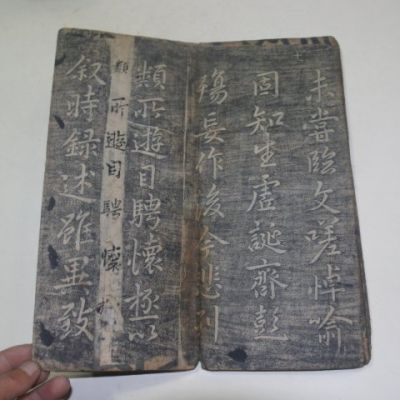 未嘗臨文嗟悼喻
固知生虛誕齊彭
殤妄作後今悲列
類所遊目騁懷極以
類所遊目騁懷
叙時録述雖異致